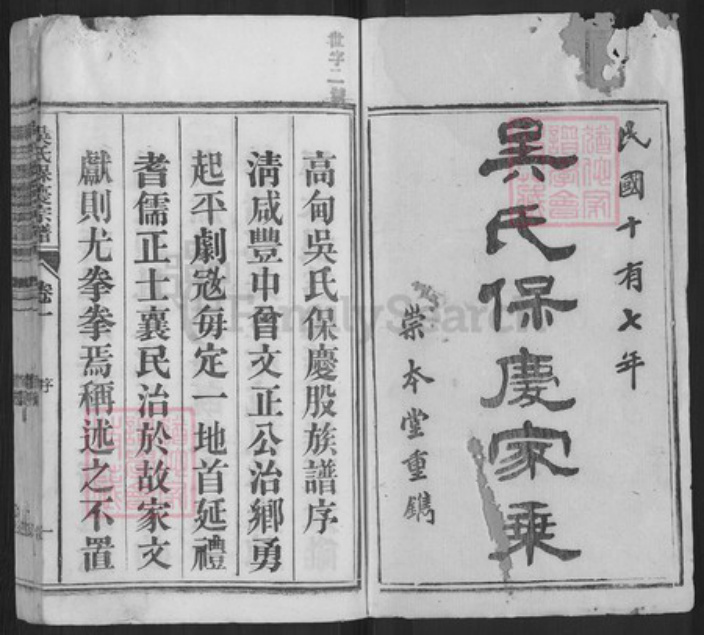 民國十有七年
吳氏保慶家乘
崇本堂重鐫
世字二號
高甸吳氏保慶股族譜序
清咸豐中曾文正公治鄉勇
起平劇寇每定一地首延禮
耆儒正士襄民治於故家文
獻則尤拳拳焉稱述之不置
吳氏保慶宗譜
卷一
序
一
FamilySearch